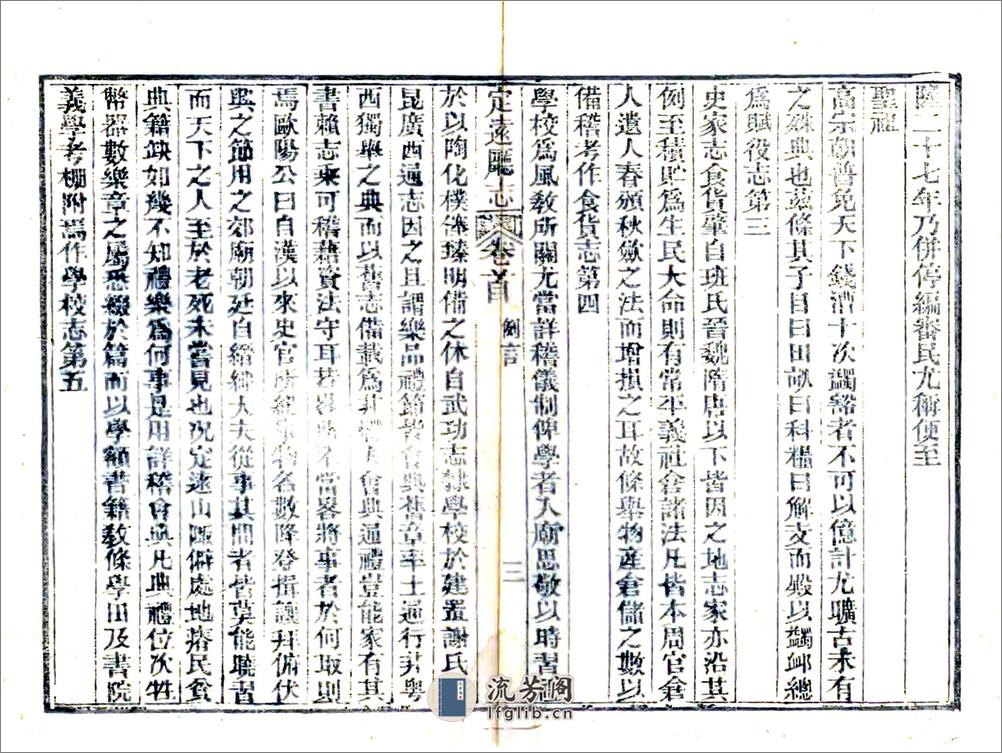 隆二十七年乃併停編審民尤稱便至
聖祖
高宗朝普免天下錢漕十次蠲豁者不可以億計尤曠古未有
之殊典也茲條其子目曰田畝曰科糧曰解支而殿以蠲卹總
為賦役志第三
史家志食貨肇自班氏晉魏隋唐以下皆因之地志家亦沿其
例至積貯為生民大命則有常平義社倉諸法凡皆本周官倉
人遺人春頒秋斂之法而增損之耳故條舉物產倉儲之數以
備稽考作食貨志第四
學校為風教所關尤當詳稽儀制俾學者入廟思敬以時習
定遠廳志 卷首 例言 三
於以陶化樸海臻明備之休自武功志隸學校於建置謝氏
昆廣西通志因之且謂樂品禮節皆會典舊章率土通行非粵
西獨舉之典而以舊志備載為非會典通禮豈能家有其
書賴志乘可稽藉資法守耳若不當畧將事者於何取則
焉歐陽公曰自漢以來史官所紀物名數降登揖讓拜俯伏
興之節用之郊廟朝廷自縉紳大夫從事其間者皆莫能曉習
而天下之人至於老死未嘗見也况定遠山陬僻處地瘠民貧
典籍缺如幾不知禮樂為何事是用詳稽會典凡典禮位次牲
幣器數樂章之屬悉綴於篇而以學額書籍教條學田及書院
義學考棚附焉作學校志第五
流芳閣
lfglib.cn